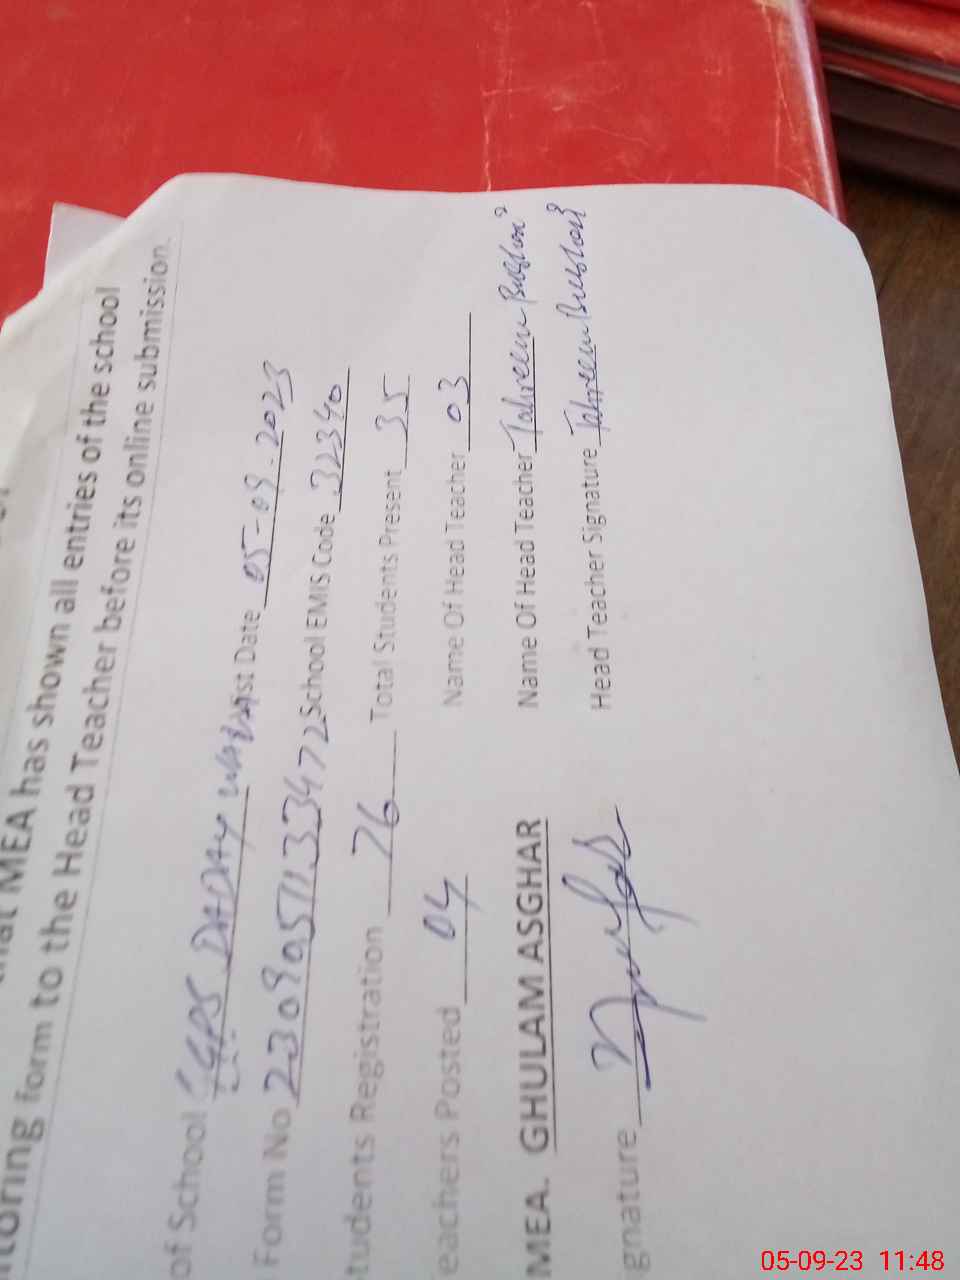 that MEA has shown all entries of the school
itoring form to the Head Teacher before its online submission.
of School GGPS DADAY ist Date 05-09-2023
Form No 2309051133472 School EMIS Code 32340
tudents Registration 76 Total Students Present 35
eachers Posted 04 Name Of Head Teacher 03
MEA. GHULAM ASGHAR Name Of Head Teacher Tahreem Bushra
gnature Head Teacher Signature Tahreem Bushra
05-09-23 11:48